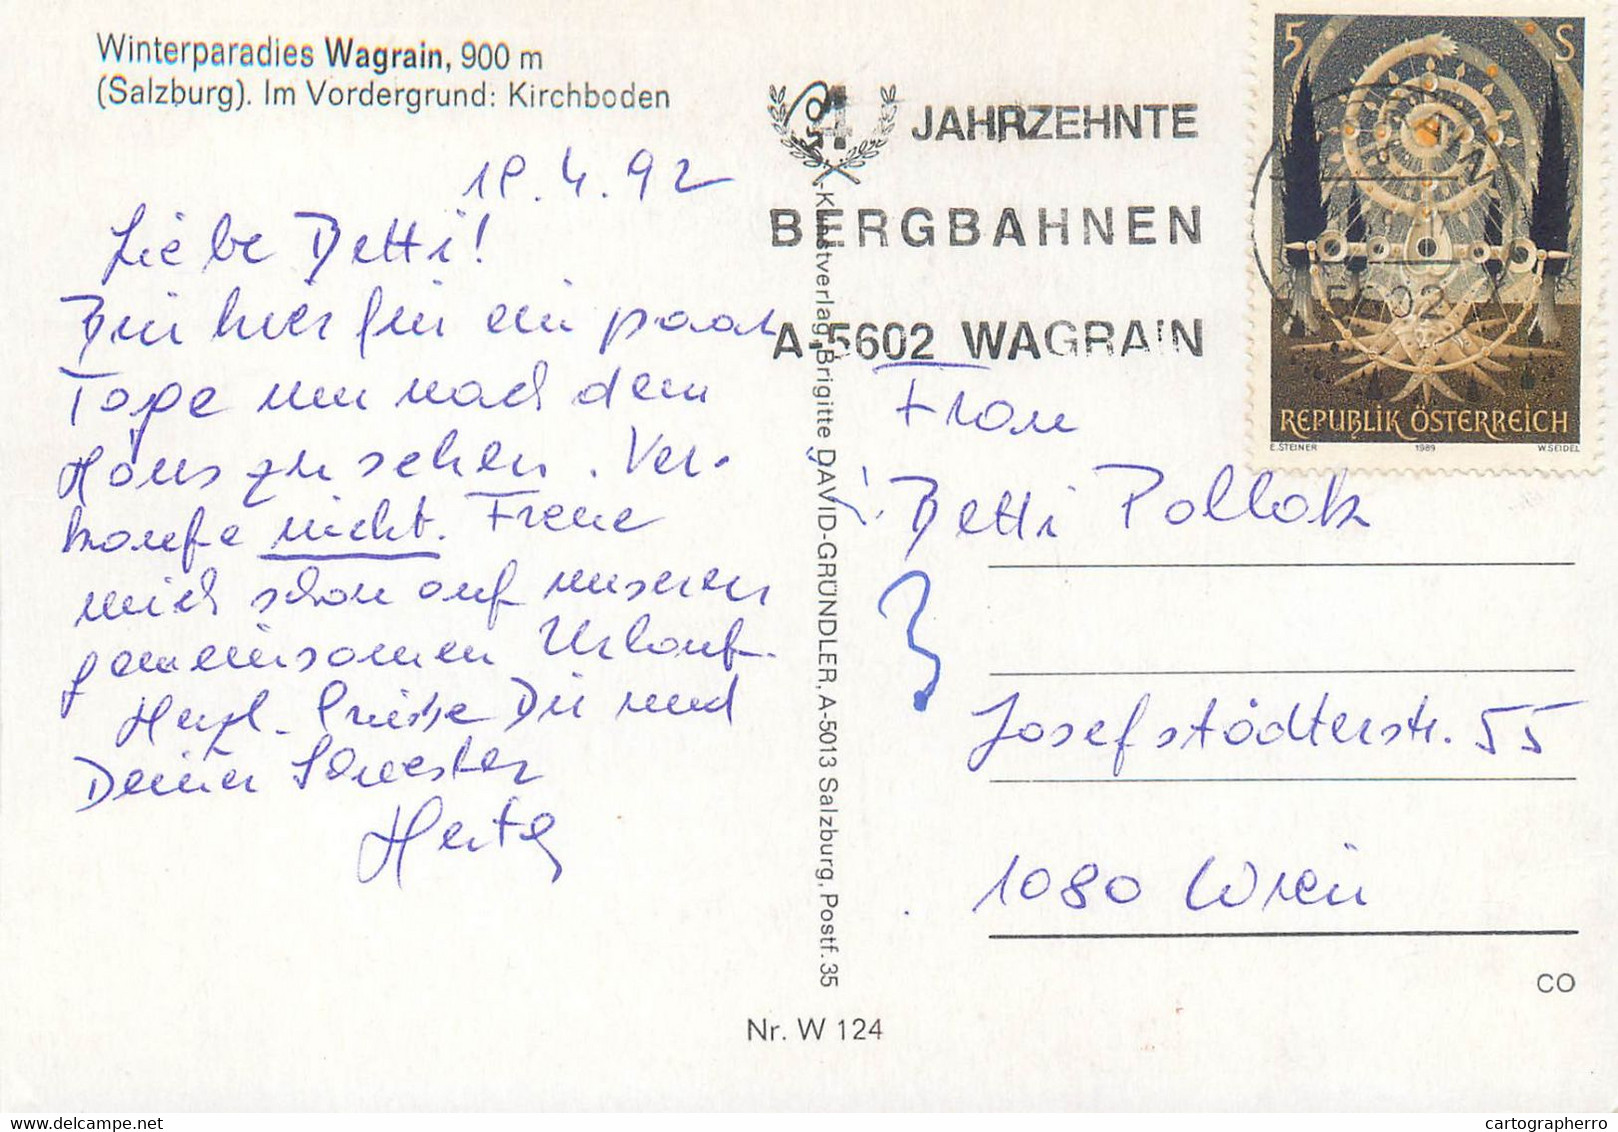 Winterparadies Wagrain, 900 m
(Salzburg). Im Vordergrund: Kirchboden
18.4.92
Liebe Betti!
Bin hier für ein paar
Tage um nach dem
Haus zu sehen. Ver-
kaufe nicht. Freue
mich schon auf unseren
gemeinsamen Urlaub.
Herzl. Grüsse Dir und
Deiner Schwester
Herta
4 JAHRZEHNTE
BERGBAHNEN
A-5602 WAGRAIN
Kunstverlag Brigitte DAVID-GRÜNDLER, A-5013 Salzburg, Postf. 35
Nr. W 124
5 S
5602
REPUBLIK ÖSTERREICH
E. STEINER 1989 W. SEIDEL
Frau
Betti Pollak
Josefstädterstr. 55
1080 Wien
CO
cartographerro